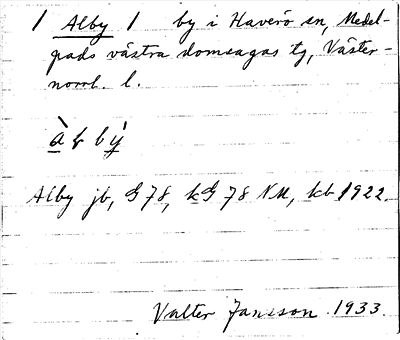 / Alby / by i Haverö sn, Medel-
pads västra domsagas tg, Väster-
norrl. l.
Alby jb, G 78, kG 78 NM, kb 1922.
Valter Jansson 1933.